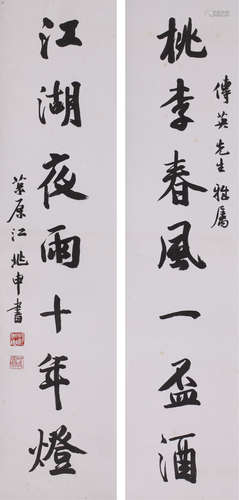 傳英先生雅屬
桃李春風一盃酒
江湖夜雨十年燈
茮原江兆申書